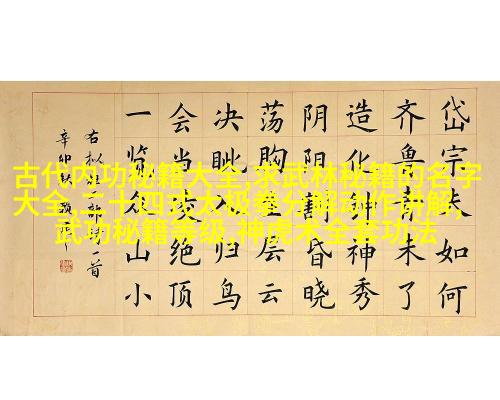 古代内功秘籍大全,求武林秘籍的名字
大全,二十四式太极拳分解动作讲解,
武功秘籍等级,神虎术全套功法
岱宗夫如何
齐鲁青未了
造化钟神秀
阴阳割昏晓
荡胸生层云
决眦入归鸟
会当凌绝顶
一览众山小
一首
辛卯